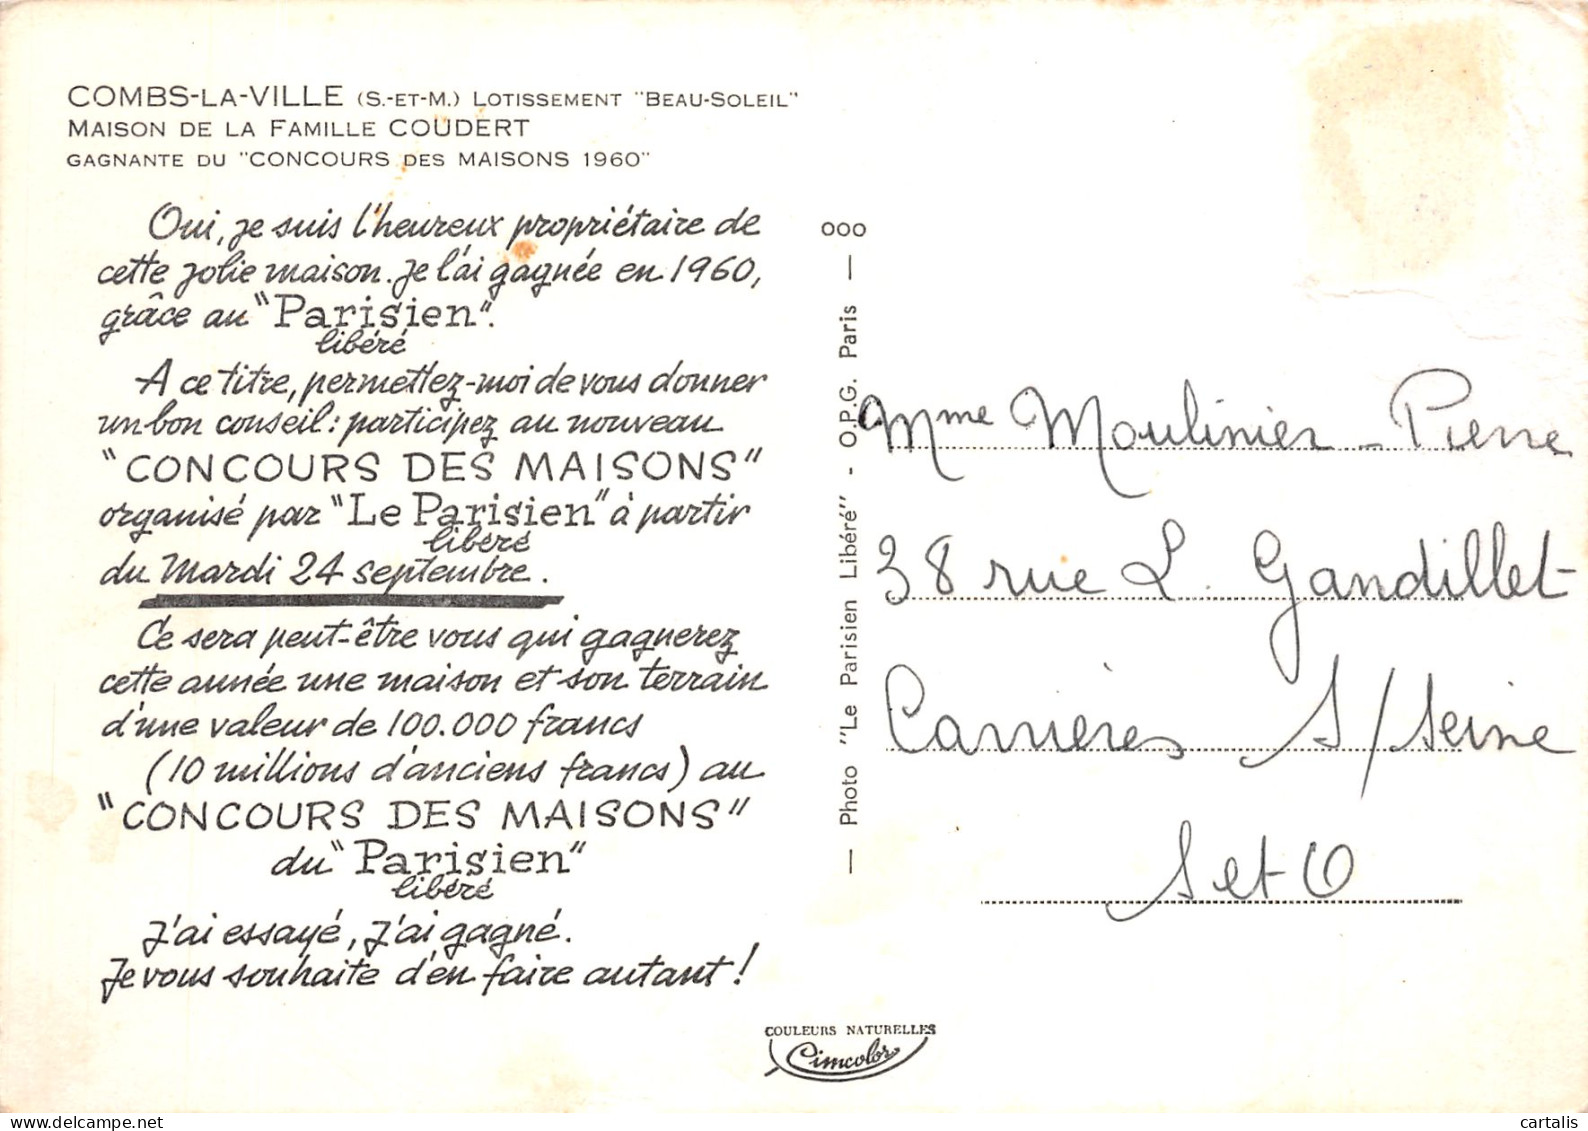 COMBS-LA-VILLE (S.-ET-M.) LOTISSEMENT "BEAU-SOLEIL"
MAISON DE LA FAMILLE COUDERT
GAGNANTE DU "CONCOURS DES MAISONS 1960"
Oui, je suis l'heureux propriétaire de
cette jolie maison. Je l'ai gagnée en 1960,
grâce au "Parisien".
libéré
A ce titre, permettez-moi de vous donner
un bon conseil : participez au nouveau
"CONCOURS DES MAISONS"
organisé par "Le Parisien" à partir
libéré
du Mardi 24 septembre.
Ce sera peut-être vous qui gagnerez
cette année une maison et son terrain
d'une valeur de 100.000 francs
(10 millions d'anciens francs) au
"CONCOURS DES MAISONS"
du "Parisien"
libéré
J'ai essayé, j'ai gagné.
Je vous souhaite d'en faire autant !
000
— Photo "Le Parisien Libéré" - O.P.G. Paris —
Mme Moulinier - Pierre
38 rue L. Gandillet
Carrières s/seine
S et O
COULEURS NATURELLES
Cimcolor
https://www.delcampe.net
cartalis